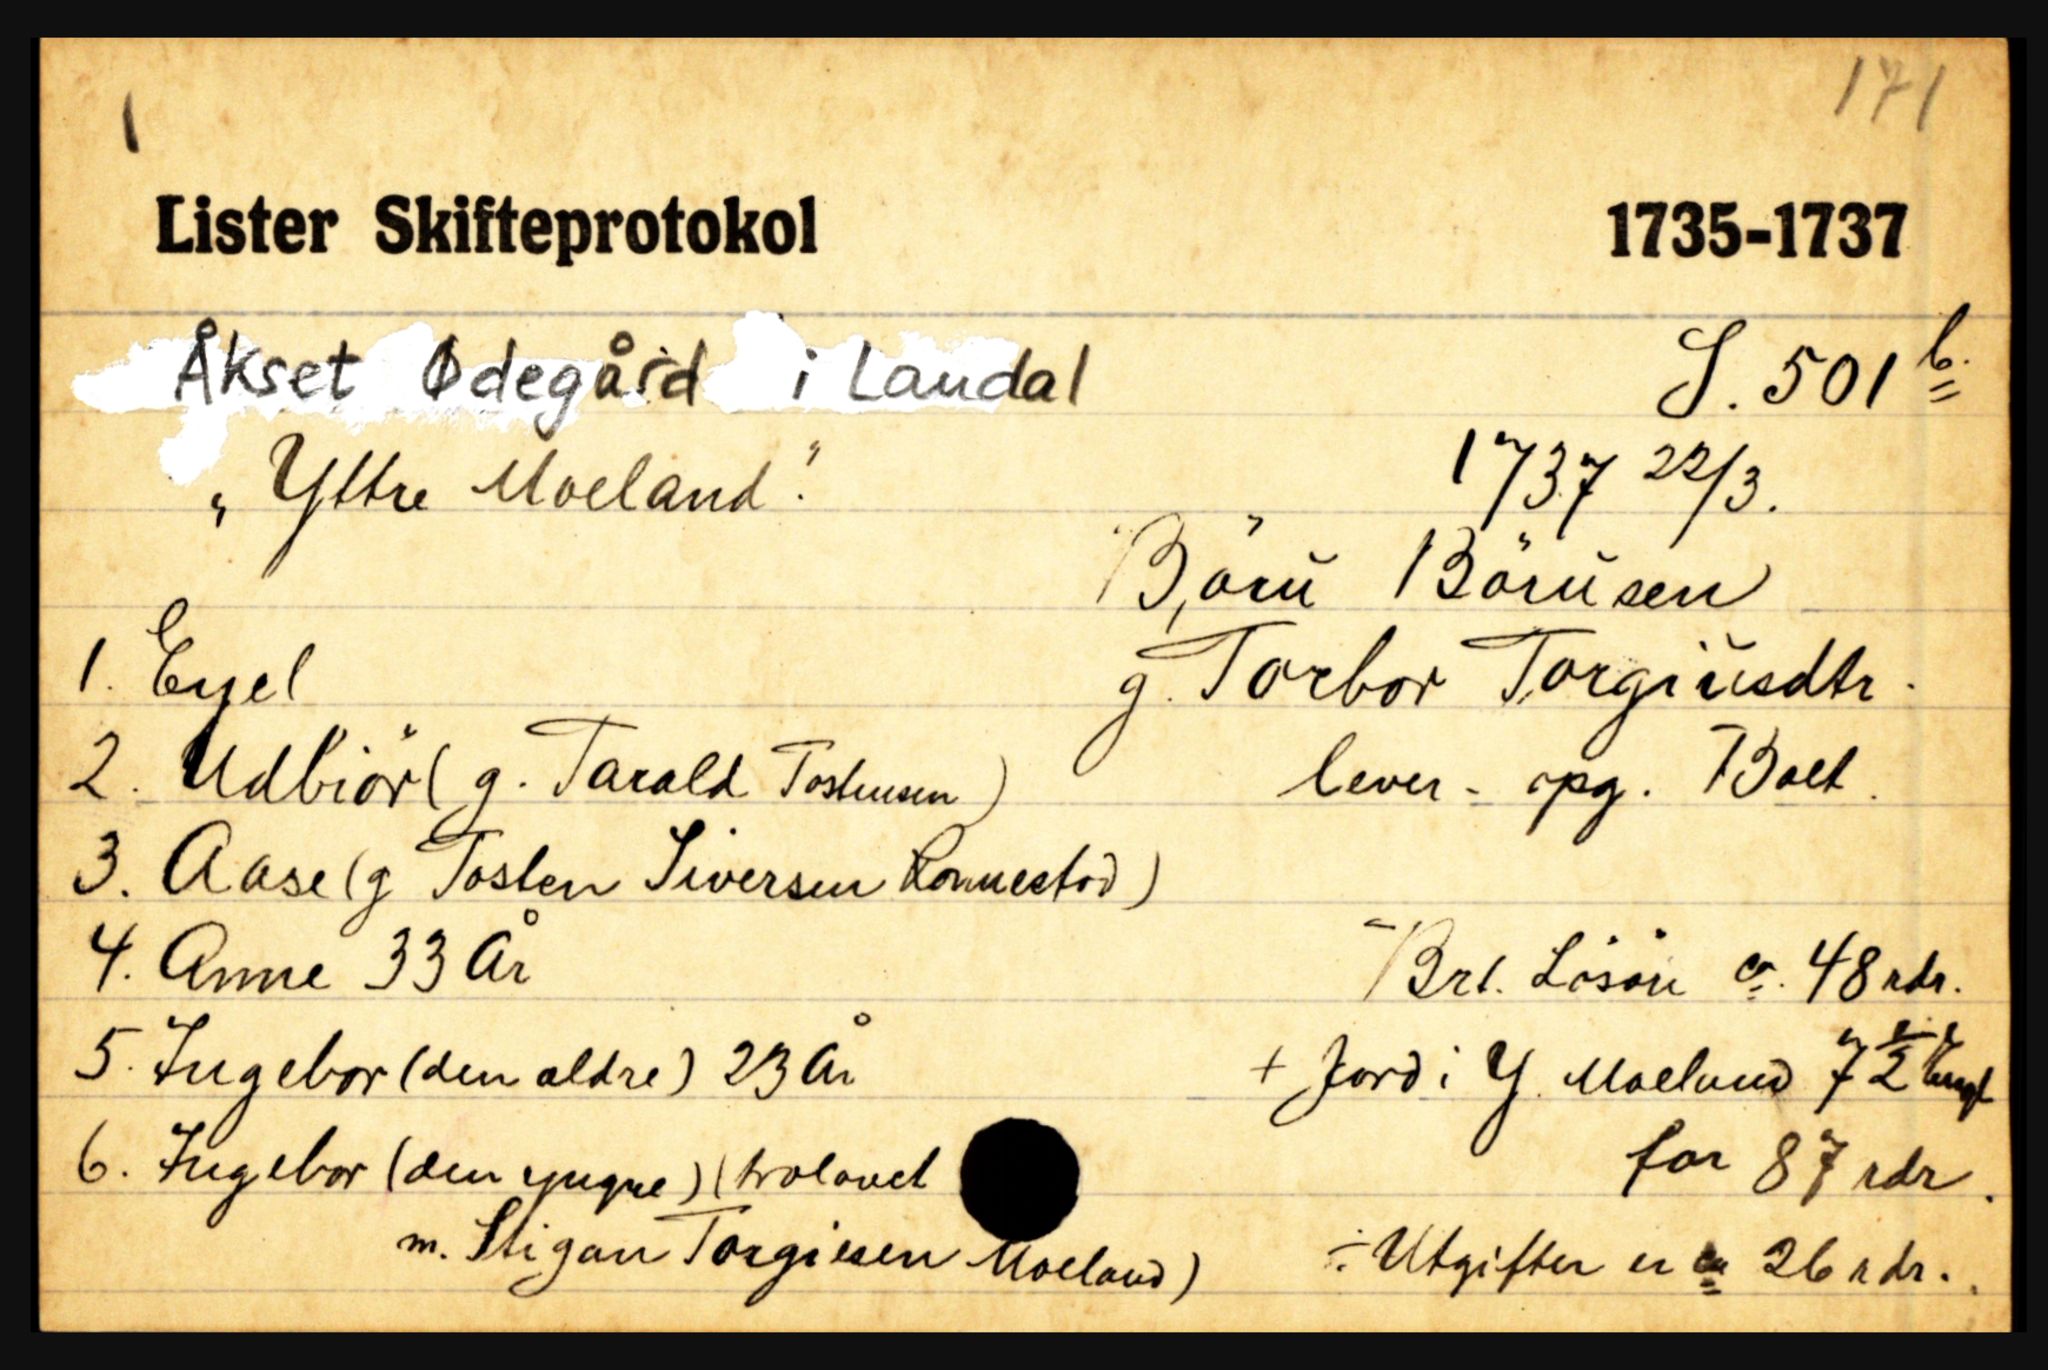 1
171
Lister Skifteprotokol 1735-1737
Åkset Ødegård i Laudal S. 501 b.
"Yttre Moeland". 1737 22/3.
Björn Börnsen
1. Eyel g. Torbor Torgiusdtr.
2. Udbiör (g. Tarald Tostensen) lever - opg. Boet.
3. Aase (g Tosten Siversen Konnestad)
4. Anne 33 År Brt. Lösöre ca. 48 rdr.
5. Ingebor (den ældre) 23 År + Jord i Y. Moeland 7 1/2 Engl
6. Ingebor (den yngre) (trolovet for 87 rdr.
m. Stigan Torgiesen Moeland) ÷ Utgifter er ca 26 rdr.